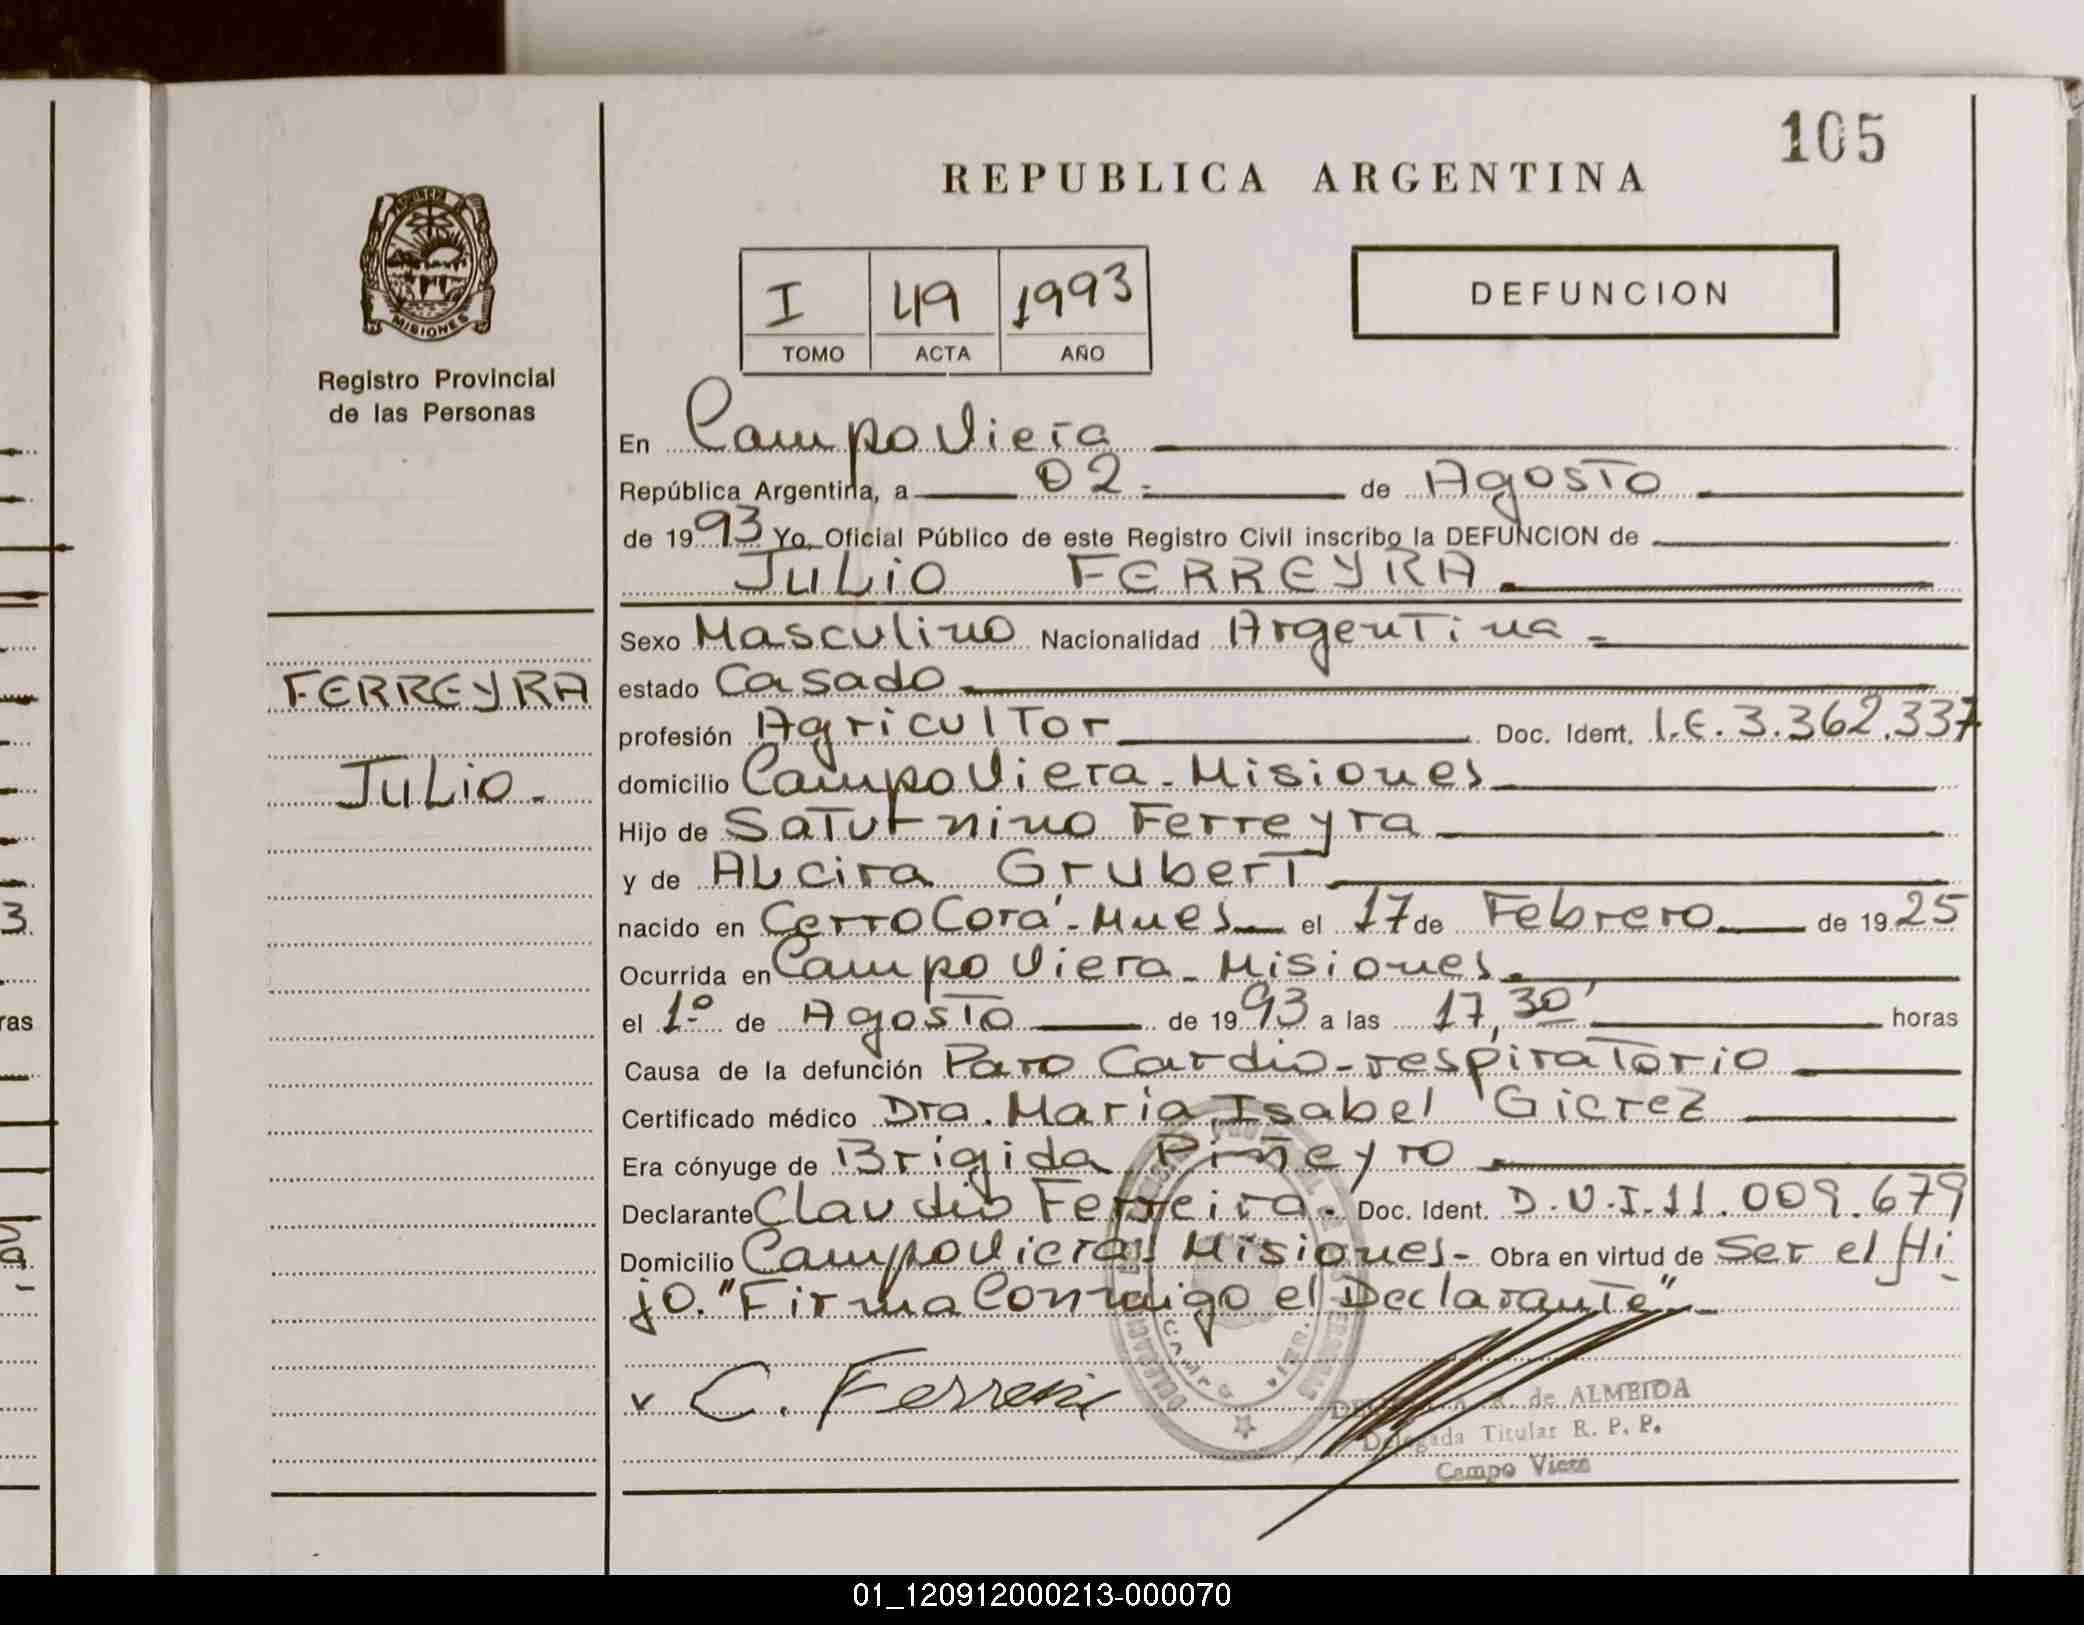 105
REPUBLICA ARGENTINA
MISIONES
Registro Provincial
de las Personas
I 49 1993
TOMO ACTA AÑO
DEFUNCION
En Campo Viera
República Argentina, a 02 de Agosto
de 1993 Yo, Oficial Público de este Registro Civil inscribo la DEFUNCION de
JULIO FERREYRA
FERREYRA
JULIO
Sexo Masculino Nacionalidad Argentina
estado Casado
profesión Agricultor Doc. Ident. L.E. 3.362.337
domicilio Campo Viera - Misiones
Hijo de Saturnino Ferreyra
y de Alcira Grubert
nacido en Cerro Corá - Mnes el 17 de Febrero de 1925
Ocurrida en Campo Viera - Misiones
el 1º de Agosto de 1993 a las 17,30 horas
Causa de la defunción Paro Cardio-respiratorio
Certificado médico Dra. María Isabel
Era cónyuge de Brígida Piñeyro
Declarante Claudio Ferreira. Doc. Ident. D.N.I. 11.009.679
Domicilio Campo Viera Misiones - Obra en virtud de Ser el Hi
jo. "Firma Conmigo el Declarante"
C. Ferreira
R. de ALMEIDA
Delegada Titular R. P. P.
Campo Viera
3
ras
01_120912000213-000070